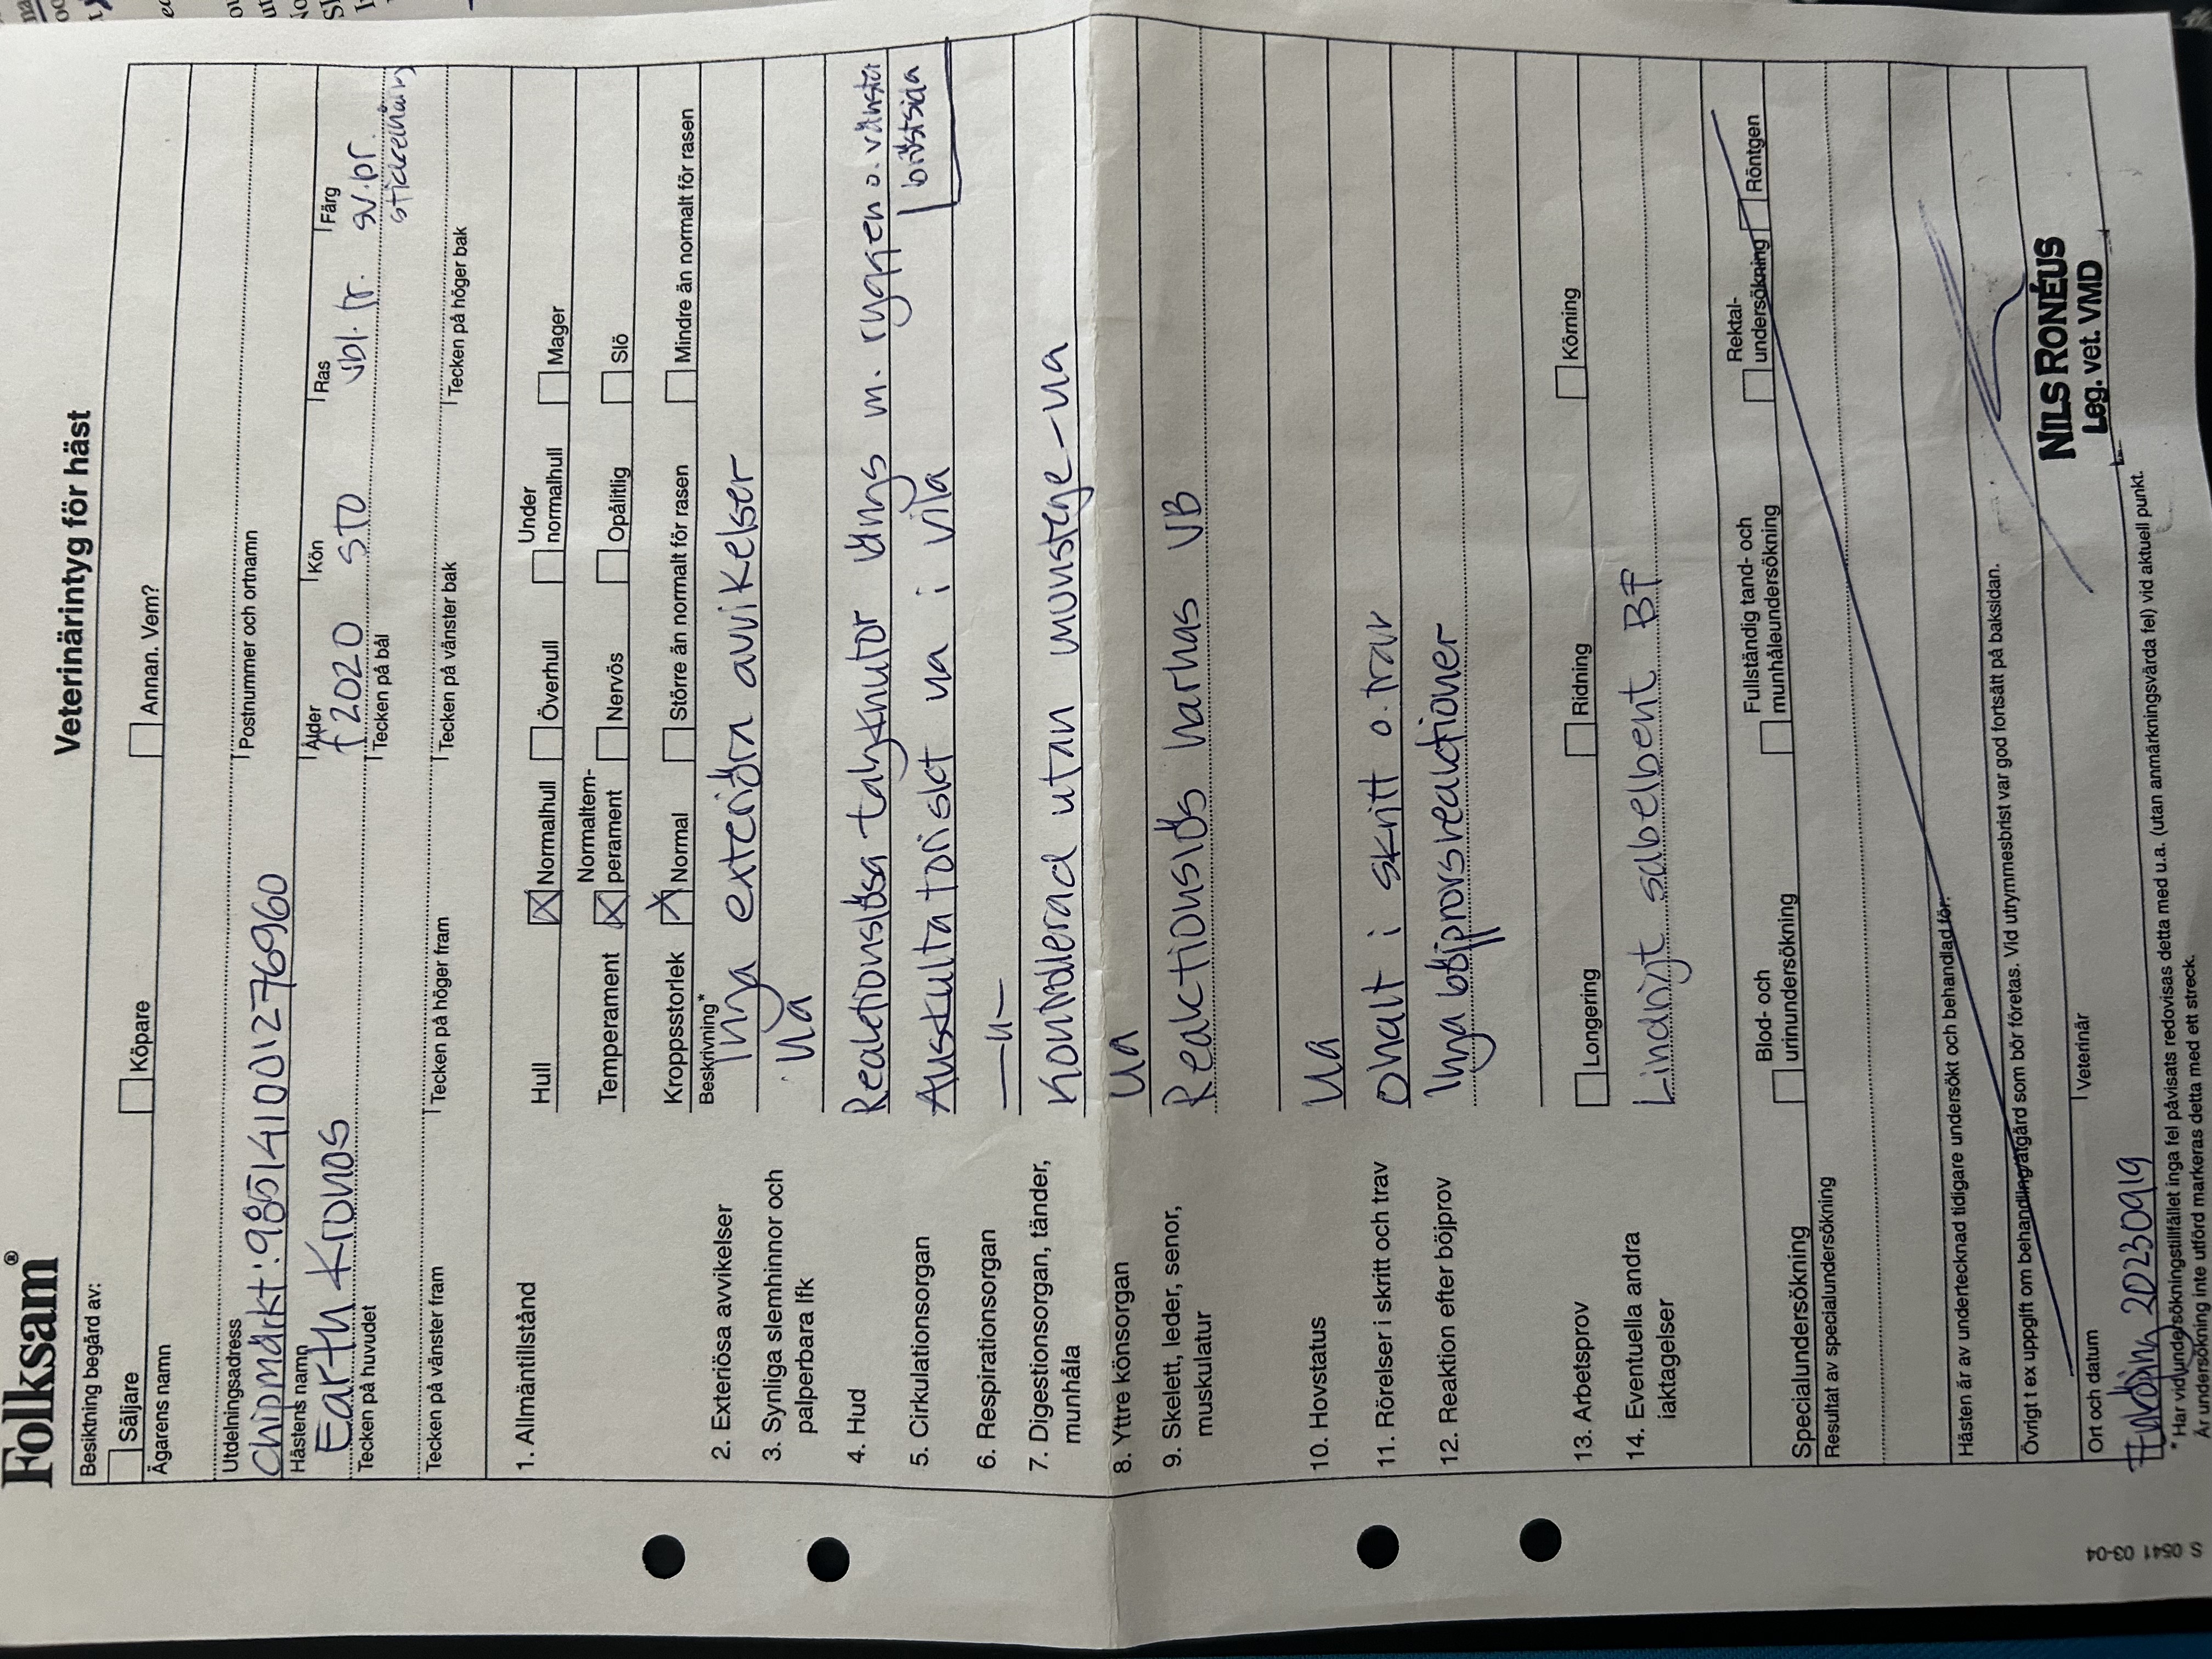 Folksam®
Veterinärintyg för häst
Besiktning begärd av:
Säljare Köpare Annan. Vem?
Ägarens namn
Utdelningsadress Postnummer och ortnamn
Chipmärkt: 985141001276960
Hästens namn Ålder Kön Ras Färg
Earth Kronos f 2020 STO vbl. tr. sv.br.
stickelhårig
Tecken på huvudet Tecken på bål
Tecken på vänster fram Tecken på höger fram Tecken på vänster bak Tecken på höger bak
1. Allmäntillstånd
Hull Normalhull Överhull Under normalhull Mager
Temperament Normaltem-perament Nervös Opålitlig Slö
Kroppsstorlek Normal Större än normalt för rasen Mindre än normalt för rasen
Beskrivning*
2. Exteriösa avvikelser Inga exteriöra avvikelser
3. Synliga slemhinnor och
palperbara lfk Ua
4. Hud Reaktionslösa talgknutor längs m. ryggen o. vänster
bröstsida
5. Cirkulationsorgan Auskultatoriskt ua i vila
6. Respirationsorgan —u—
7. Digestionsorgan, tänder,
munhåla Kontrollerad utan munstege - ua
8. Yttre könsorgan Ua
9. Skelett, leder, senor,
muskulatur Reaktionslös harhas VB
10. Hovstatus Ua
11. Rörelser i skritt och trav Ohalt i skritt o. trav
12. Reaktion efter böjprov Inga böjprovsreaktioner
13. Arbetsprov Longering Ridning Körning
14. Eventuella andra
iakttagelser Lindrigt sabelbent BF
Specialundersökning Blod- och urinundersökning Fullständig tand- och munhåleundersökning Rektal-undersökning Röntgen
Resultat av specialundersökning
Hästen är av undertecknad tidigare undersökt och behandlad för:
Övrigt t ex uppgift om behandling/åtgärd som bör företas. Vid utrymmesbrist var god fortsätt på baksidan.
Ort och datum Veterinär
20230919
NILS RONÉUS
Leg. vet. VMD
* Har vid undersökningstillfället inga fel påvisats redovisas detta med u.a. (utan anmärkningsvärda fel) vid aktuell punkt.
Är undersökning inte utförd markeras detta med ett streck.
S 0541 03-04